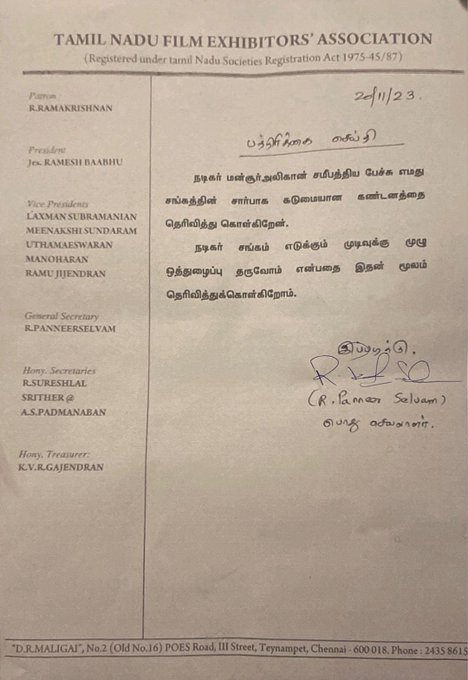 TAMIL NADU FILM EXHIBITORS' ASSOCIATION
(Registered under tamil Nadu Societies Registration Act 1975-45/87)
Patron
R.RAMAKRISHNAN
President
Jcs. RAMESH BAABHU
Vice Presidents
LAXMAN SUBRAMANIAN
MEENAKSHI SUNDARAM
UTHAMAESWARAN
MANOHARAN
RAMU JIJENDRAN
General Secretary
R.PANNEERSELVAM
Hony. Secretaries
R.SURESHLAL
SRITHER @
A.S.PADMANABAN
Hony. Treasurer:
K.V.R.GAJENDRAN
20/11/23.
பத்திரிக்கை செய்தி
நடிகர் மன்சூர்அலிகான் சமீபத்திய பேச்சு எமது
சங்கத்தின் சார்பாக கடுமையான கண்டனத்தை
தெரிவித்து கொள்கிறேன்.
நடிகர் சங்கம் எடுக்கும் முடிவுக்கு முழு
ஒத்துழைப்பு தருவோம் என்பதை இதன் மூலம்
தெரிவித்துக்கொள்கிறோம்.
இப்படிக்கு,
(R. Panneer Selvam)
பொது செயலாளர்.
"D.R.MALIGAI", No.2 (Old No.16) POES Road, III Street, Teynampet, Chennai - 600 018. Phone : 2435 8615